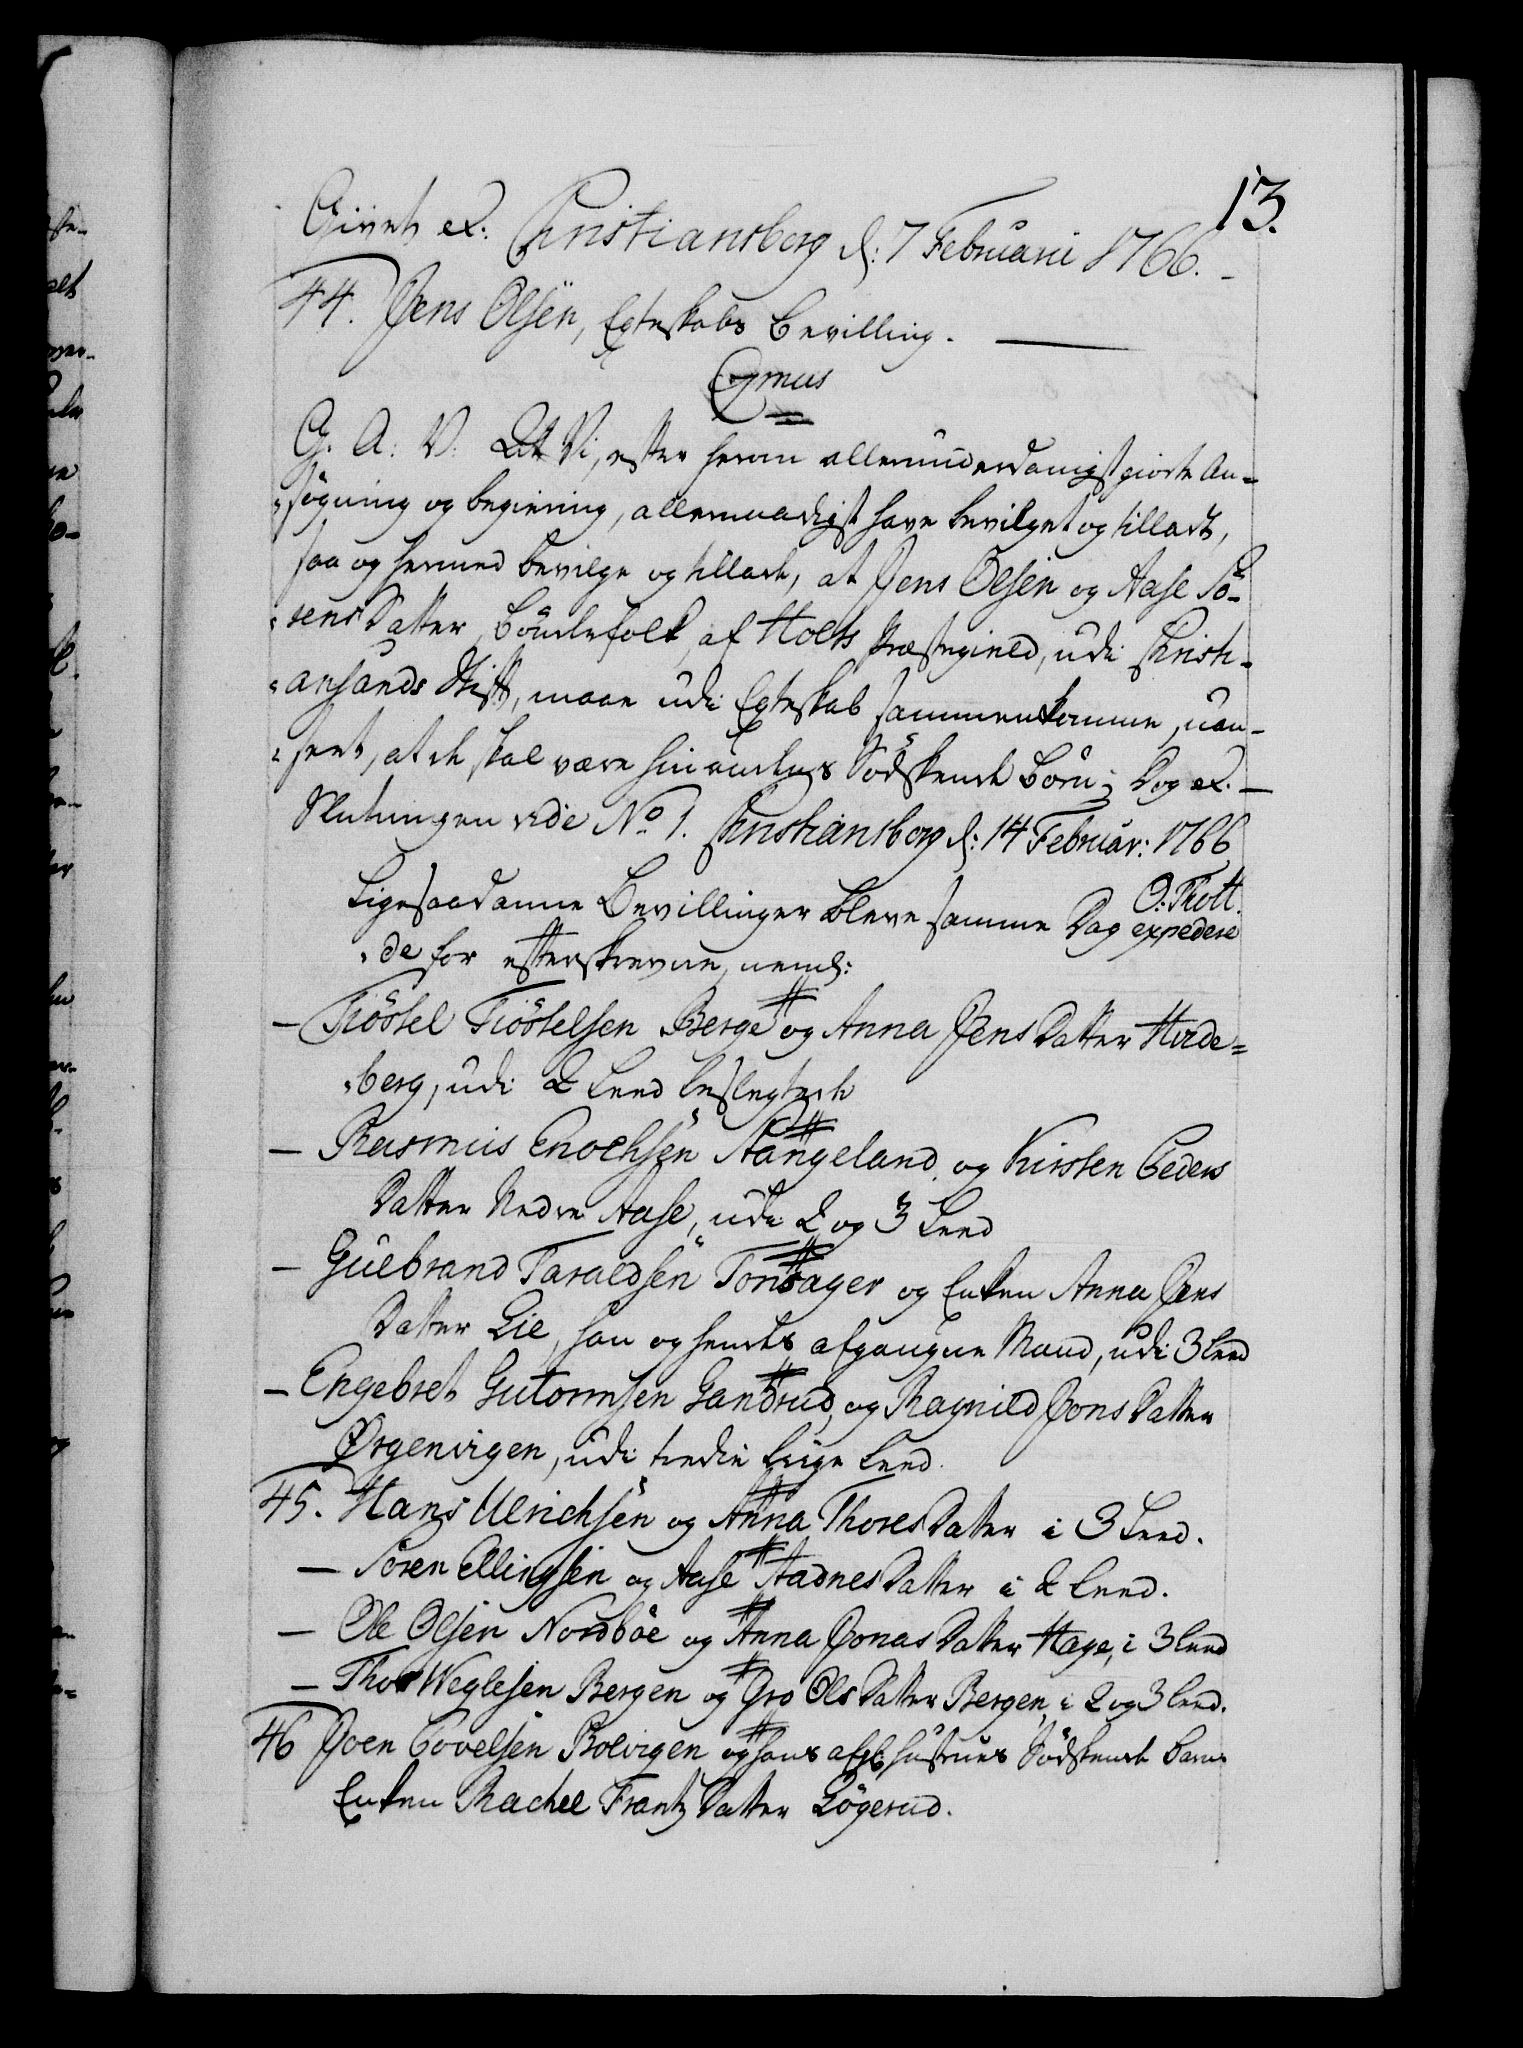 13.
Givet etc: Christiansborg d: 7 Februarii 1766.
44. Jens Olsen, Egteskabs Bevilling.
Gmus
G. A: V: At Vi, efter herom allerunderdanigst giorte An-
søgning og begiering, allernaadigst have bevilget og tilladt,
saa og hermed bevilge og tillade, at Jens Olsen og Aase Sö-
rens Datter, Bøndefolk, af Holts Præstegield, udi Christi-
ansands Stift, maae udi Egteskab sammenkomme, uan-
seet, at de skal være hinandens Södskende Børn; Dog etc.
Slutningen vide No 1. Christiansborg d: 14 Februar: 1766
O: Thott.
Ligesaadanne Bevillinger bleve samme Dag expedere
de for efterskrevne, neml:
- Tiöstel Tiöstelsen Berge og Anna Jens Datter Hirde-
berg, udi 2 Leed beslegtede
- Rasmus Enochsen Aangeland og Kirsten Peders
Datter Nedre Aase, udi 2 og 3 Leed
- Gulbrand Taraldsen Tonsager og Enken Anna Jens
Datter Lie, han og hendes afgangne Mand, udi 3 Leed
- Engebret Gutormsen Gandrud, og Ragnild Jons Datter
Ørgenvigen, udi tredie Liige Leed.
45. Hans Ulrichsen og Anna Thores Datter i 3 Leed.
- Sören Ellingsen og Aase Aadnes Datter i 2 Leed.
- Ole Olsen Nordböe og Anna Jonas Datter Hage, i 3 Leed
- Thor Weglesen Bergen og Gro Ols Datter Bergen, i 2 og 3 Leed.
46 Joen Povelsen Bolvigen og hans afg: Hustrues Södskende Barn
Enken Rachel Frantz Datter Lögerud.